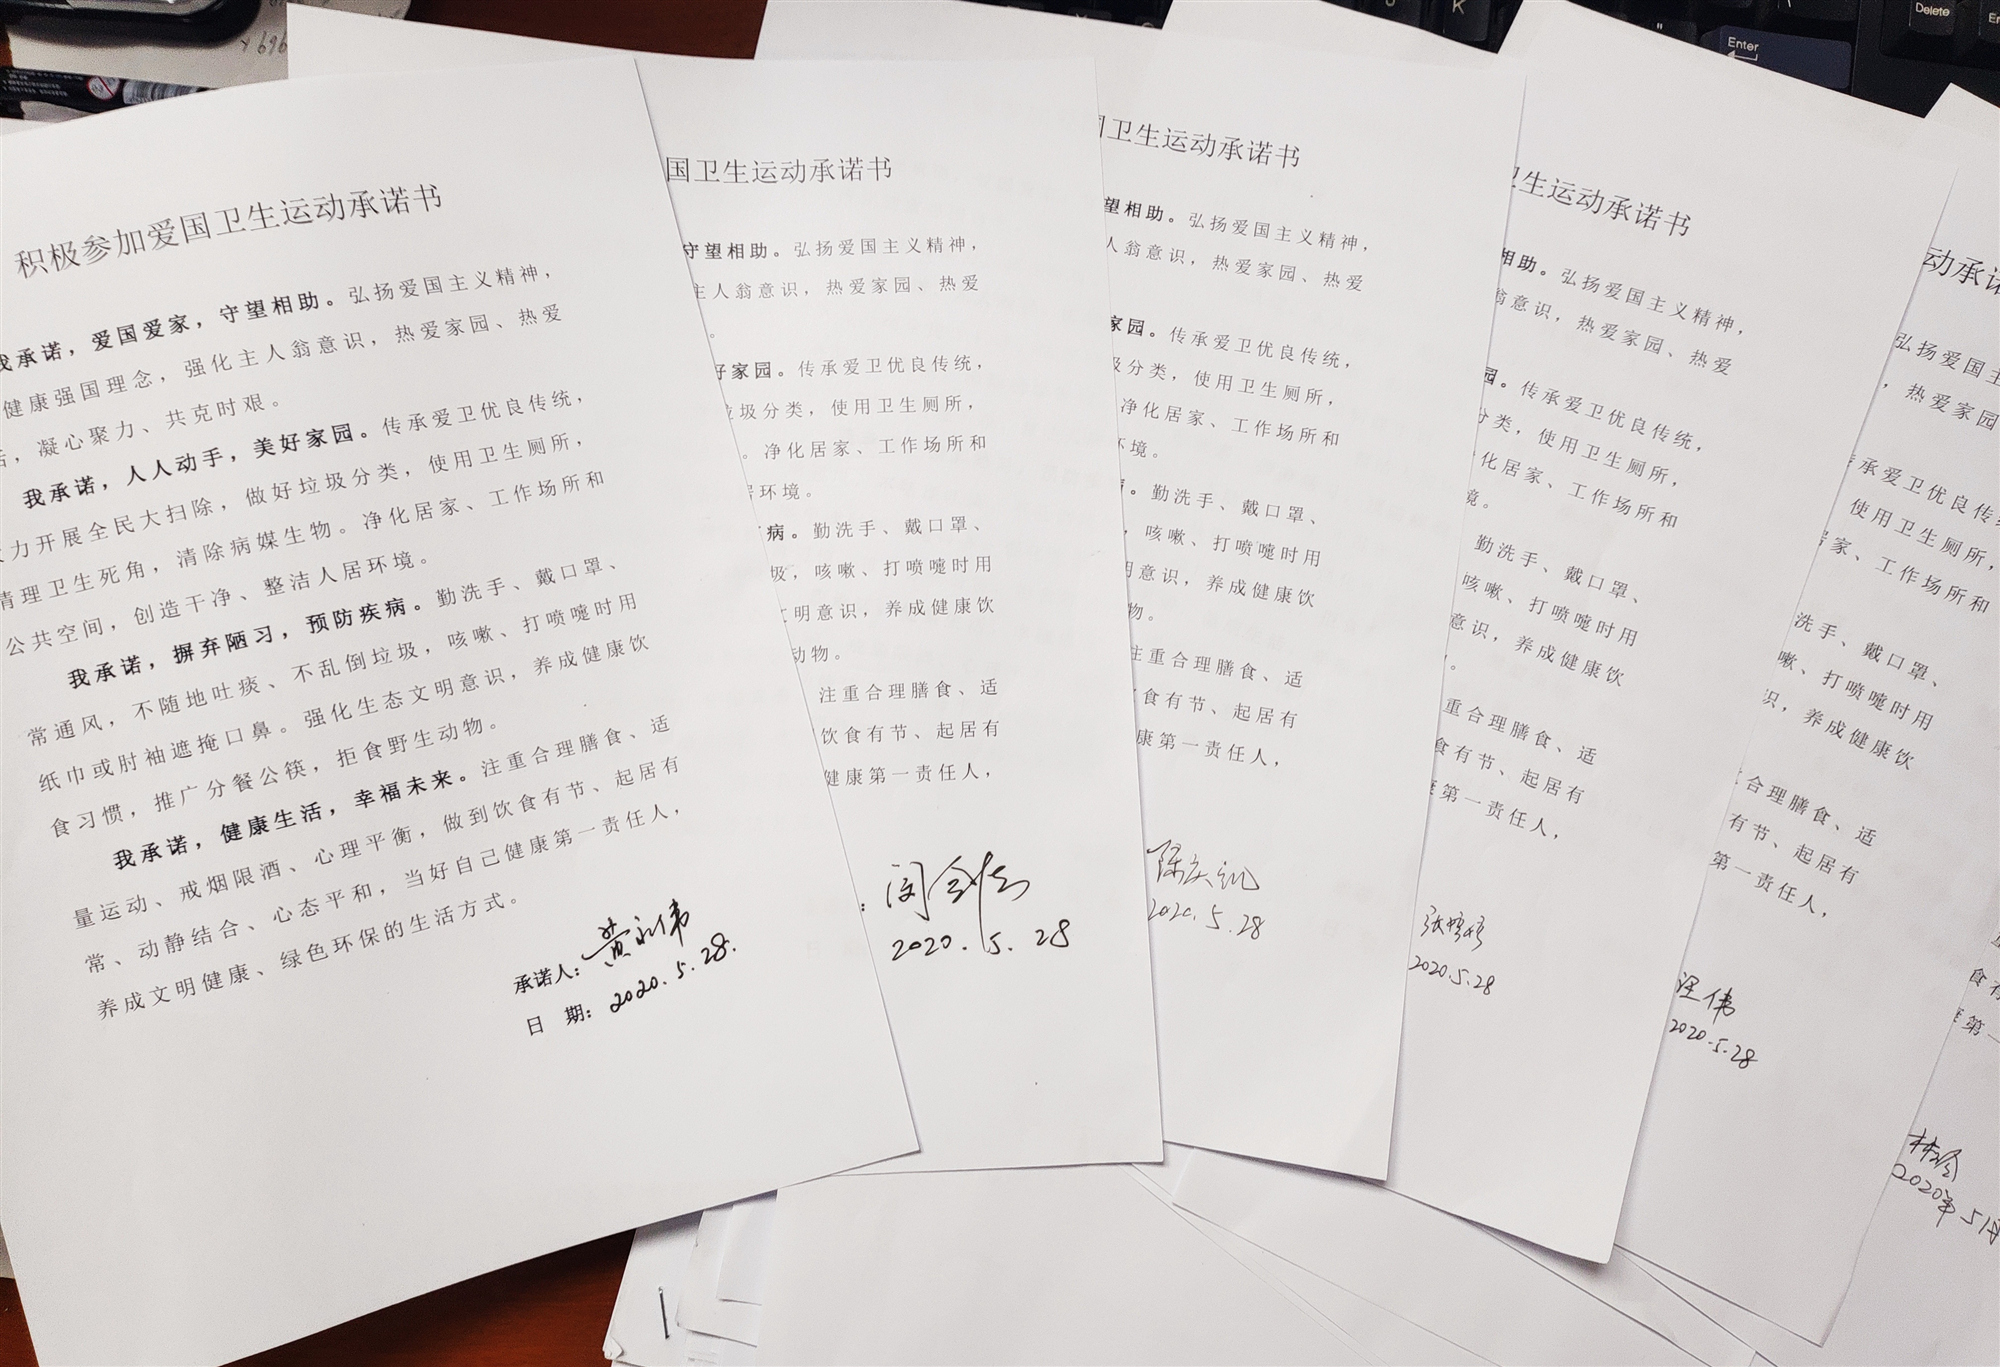 积极参加爱国卫生运动承诺书
我承诺，爱国爱家，守望相助。弘扬爱国主义精神，
健康强国理念，强化主人翁意识，热爱家园、热爱
，凝心聚力、共克时艰。
我承诺，人人动手，美好家园。传承爱卫优良传统，
力开展全民大扫除，做好垃圾分类，使用卫生厕所，
清理卫生死角，清除病媒生物。净化居家、工作场所和
公共空间，创造干净、整洁人居环境。
我承诺，摒弃陋习，预防疾病。勤洗手、戴口罩、
常通风，不随地吐痰、不乱倒垃圾，咳嗽、打喷嚏时用
纸巾或肘袖遮掩口鼻。强化生态文明意识，养成健康饮
食习惯，推广分餐公筷，拒食野生动物。
我承诺，健康生活，幸福未来。注重合理膳食、适
量运动、戒烟限酒、心理平衡，做到饮食有节、起居有
常、动静结合、心态平和，当好自己健康第一责任人，
养成文明健康、绿色环保的生活方式。
承诺人：黄永伟
日 期：2020.5.28.
国卫生运动承诺书
守望相助。弘扬爱国主义精神，
主人翁意识，热爱家园、热爱
。
好家园。传承爱卫优良传统，
垃圾分类，使用卫生厕所，
。净化居家、工作场所和
居环境。
病。勤洗手、戴口罩、
圾，咳嗽、打喷嚏时用
文明意识，养成健康饮
动物。
注重合理膳食、适
饮食有节、起居有
健康第一责任人，
：
2020.5.28
国卫生运动承诺书
望相助。弘扬爱国主义精神，
人翁意识，热爱家园、热爱
家园。传承爱卫优良传统，
圾分类，使用卫生厕所，
净化居家、工作场所和
环境。
。勤洗手、戴口罩、
，咳嗽、打喷嚏时用
明意识，养成健康饮
物。
注重合理膳食、适
饮食有节、起居有
康第一责任人，
2020.5.28
卫生运动承诺书
相助。弘扬爱国主义精神，
翁意识，热爱家园、热爱
园。传承爱卫优良传统，
分类，使用卫生厕所，
净化居家、工作场所和
境。
勤洗手、戴口罩、
咳嗽、打喷嚏时用
意识，养成健康饮
。
重合理膳食、适
食有节、起居有
康第一责任人，
2020.5.28
动承诺
弘扬爱国主
，热爱家园
传承爱卫优良传统
使用卫生厕所，
居家、工作场所和
洗手、戴口罩、
嗽、打喷嚏时用
识，养成健康饮
合理膳食、适
有节、起居有
第一责任人，
汪伟
2020.5.28
食有
第一
2020年5月
Enter
Delete
K